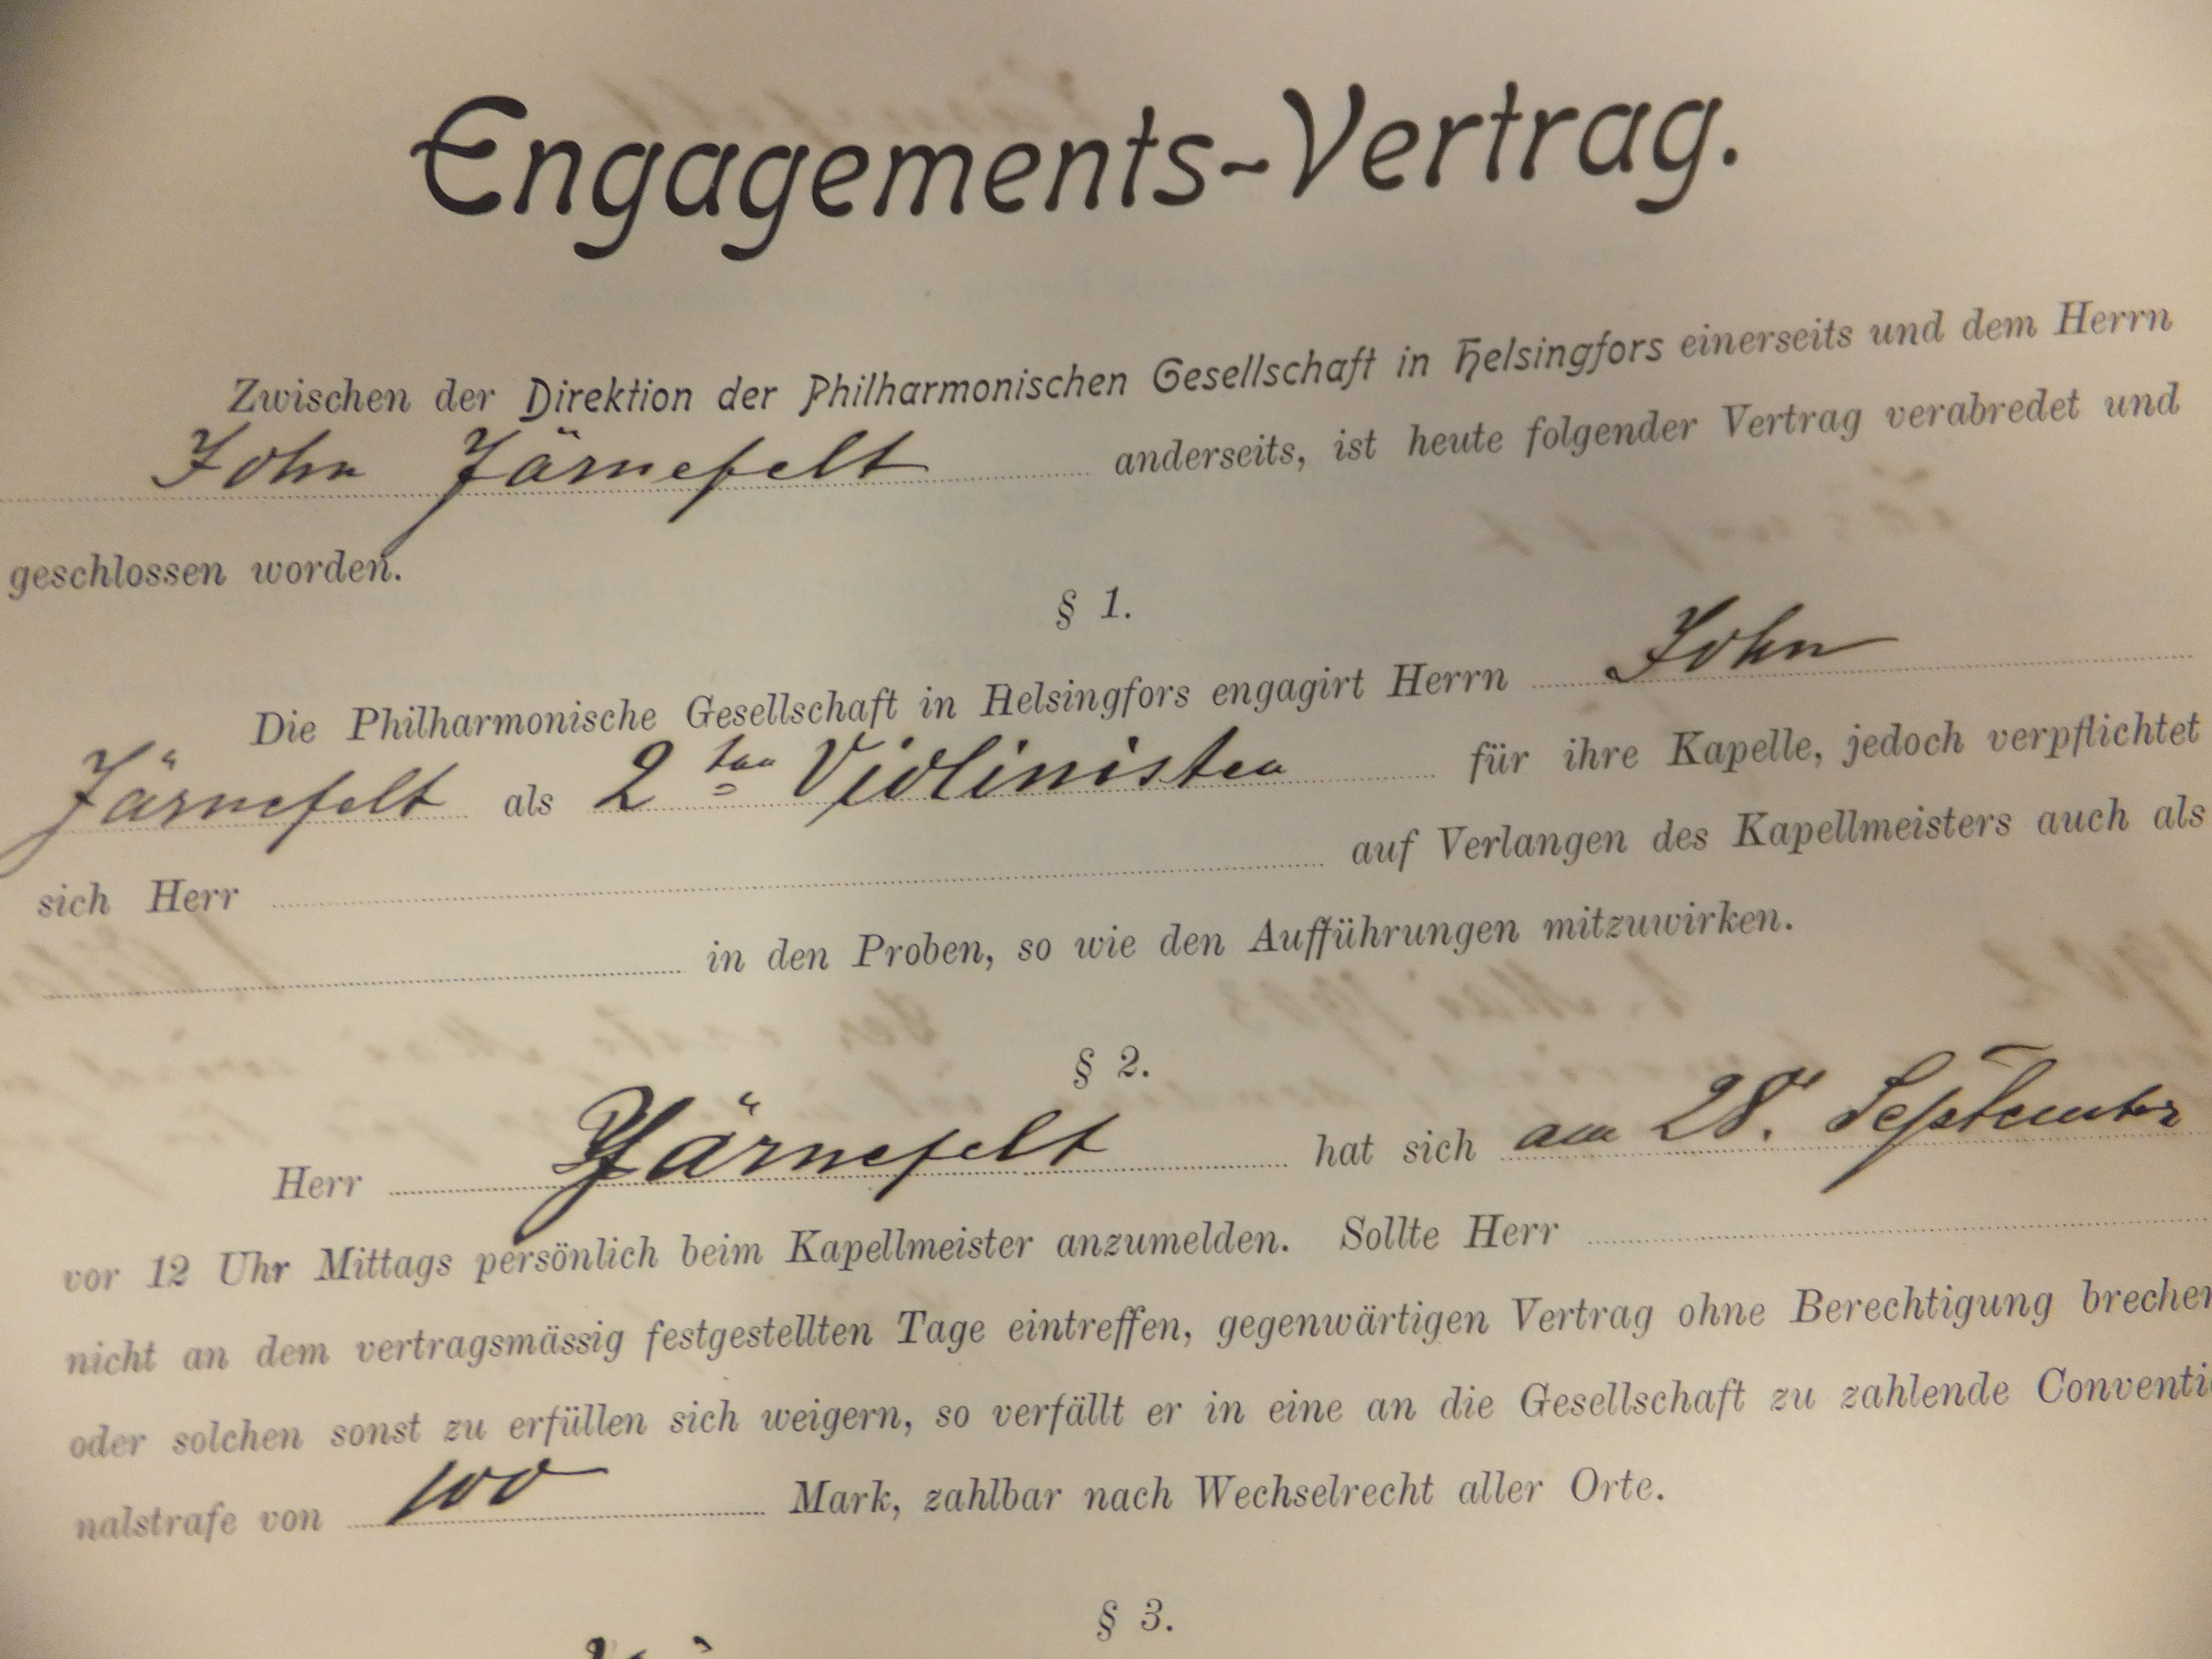 Engagements-Vertrag.
Zwischen der Direktion der Philharmonischen Gesellschaft in Helsingfors einerseits und dem Herrn
John Järnefelt anderseits, ist heute folgender Vertrag verabredet und
geschlossen worden.
§ 1.
Die Philharmonische Gesellschaft in Helsingfors engagirt Herrn John
Järnefelt als 2ten Violinisten für ihre Kapelle, jedoch verpflichtet
sich Herr auf Verlangen des Kapellmeisters auch als
in den Proben, so wie den Aufführungen mitzuwirken.
§ 2.
Herr Järnefelt hat sich am 28. September
vor 12 Uhr Mittags persönlich beim Kapellmeister anzumelden. Sollte Herr
nicht an dem vertragsmässig festgestellten Tage eintreffen, gegenwärtigen Vertrag ohne Berechtigung brechen
oder solchen sonst zu erfüllen sich weigern, so verfällt er in eine an die Gesellschaft zu zahlende Conventi
nalstrafe von 100 Mark, zahlbar nach Wechselrecht aller Orte.
§ 3.